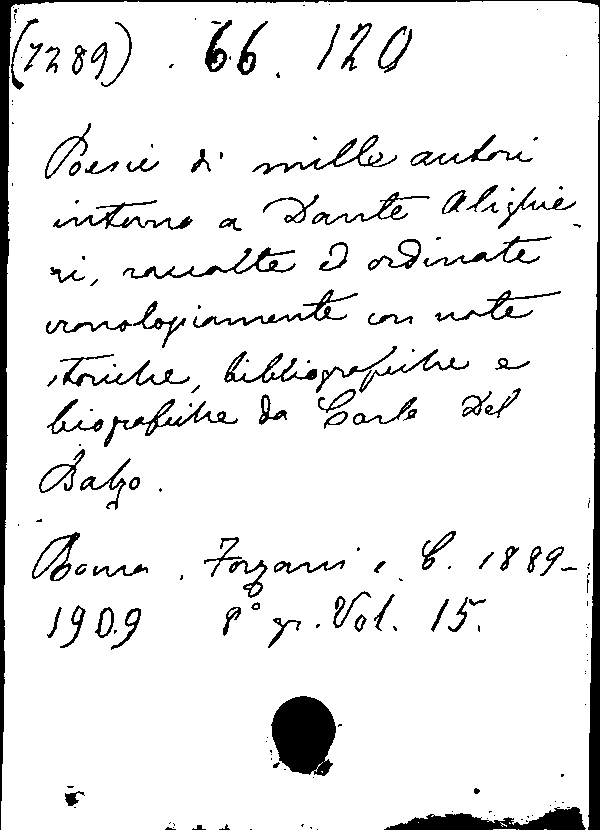 (7289) . 66. 120
Poesie di mille autori
intorno a Dante Alighie-
ri, raccolte ed ordinate
cronologiamente con note
storiche, bibliografiche e
biografiche da Carlo Del
Balzo.
Roma. Forzani e C. 1889-
1909 8° gr. Vol. 15.